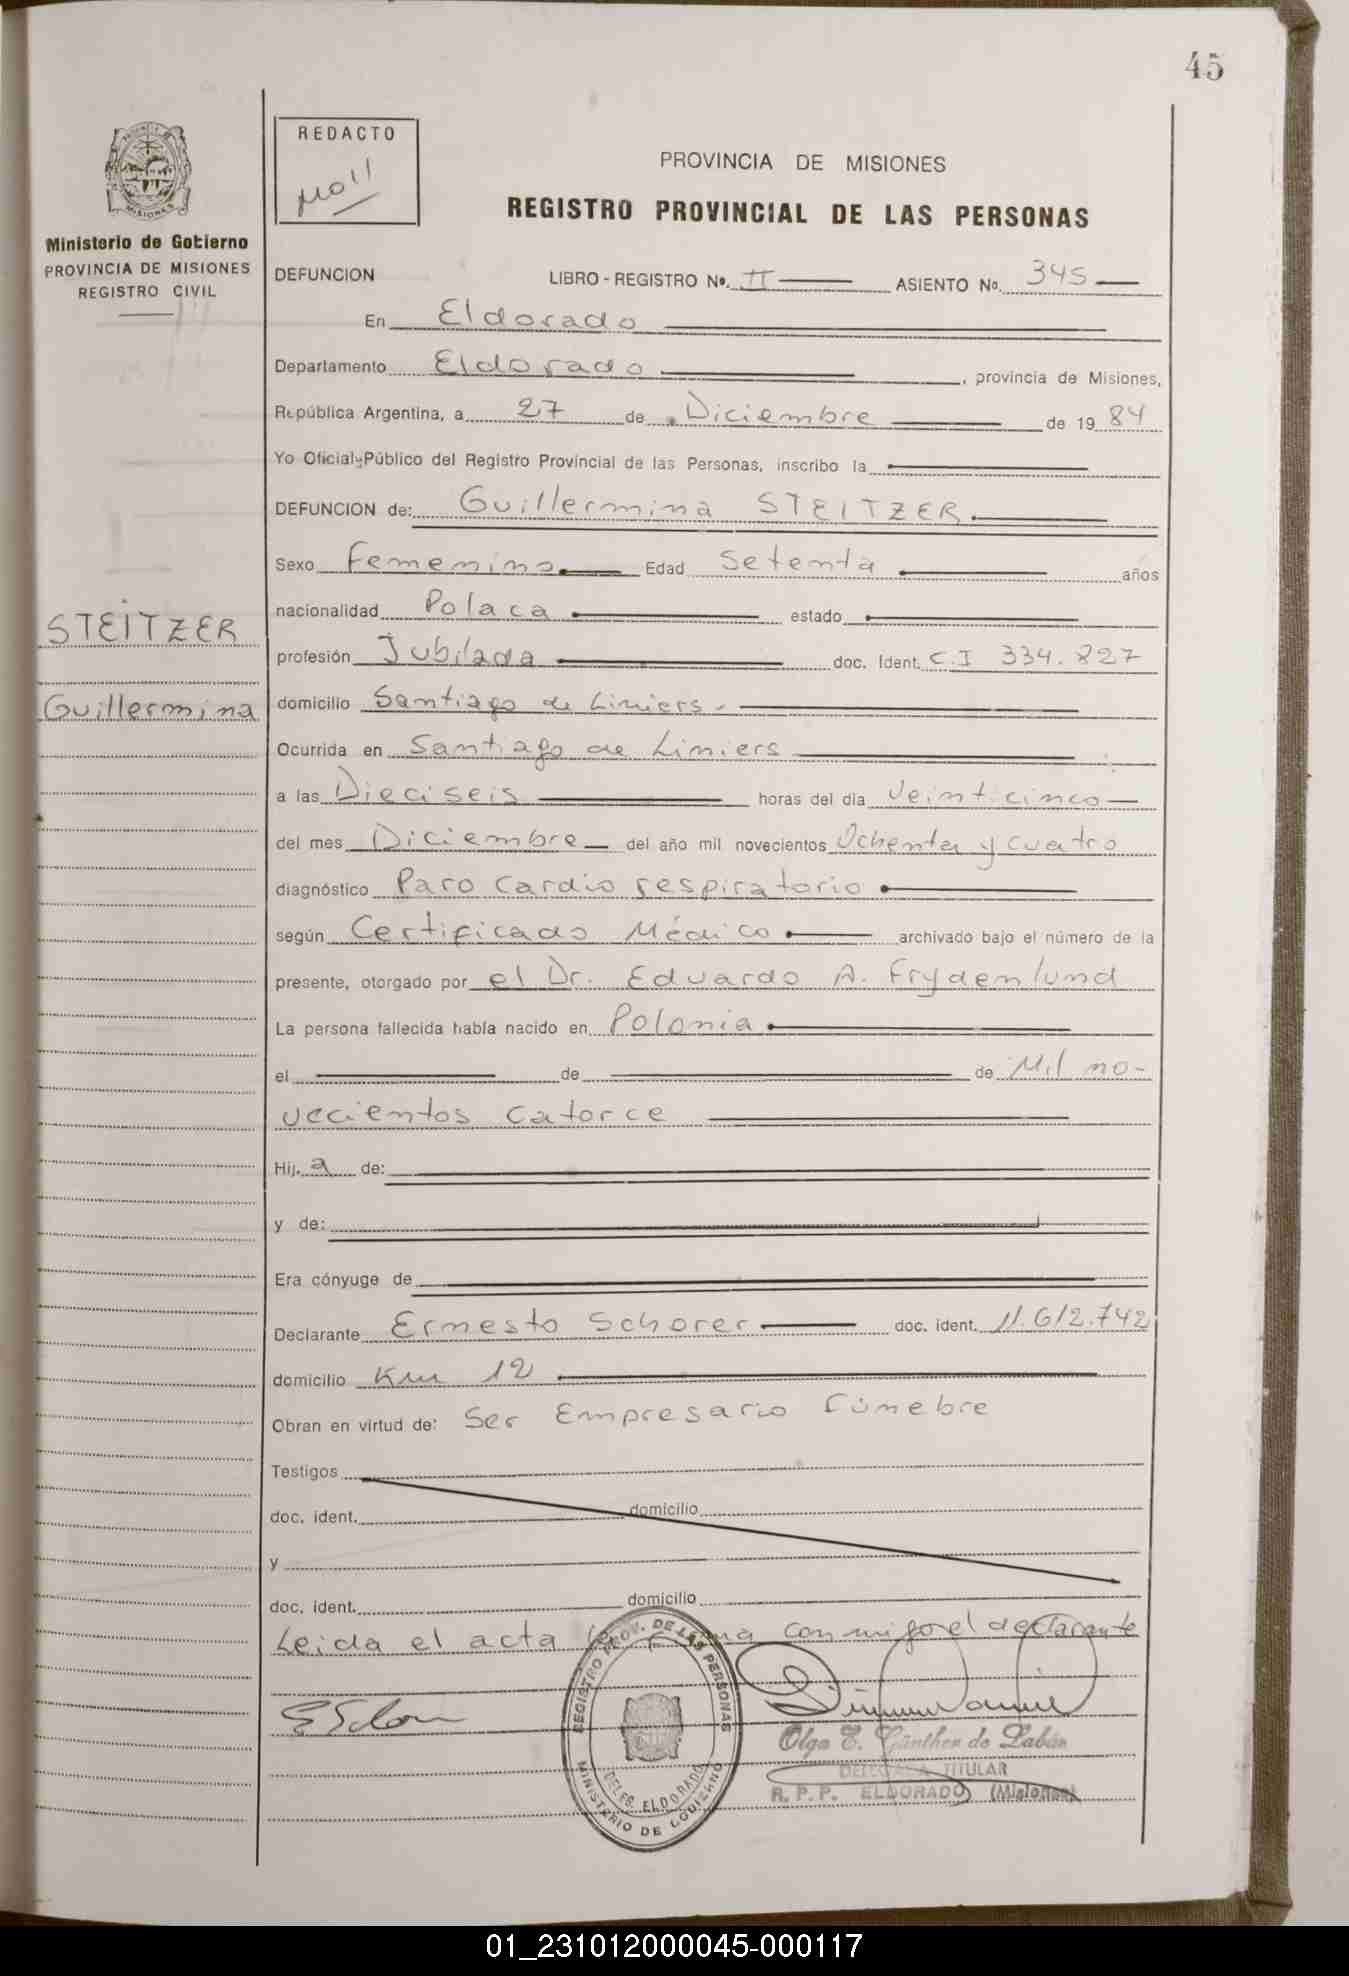 45
REDACTO
Moll
PROVINCIA DE MISIONES
REGISTRO PROVINCIAL DE LAS PERSONAS
Ministerio de Gobierno
PROVINCIA DE MISIONES
REGISTRO CIVIL
DEFUNCION LIBRO - REGISTRO No. II ASIENTO No. 345
En Eldorado
Departamento Eldorado, provincia de Misiones,
República Argentina, a 27 de Diciembre de 19 84
Yo Oficial Público del Registro Provincial de las Personas, inscribo la
DEFUNCION de: Guillermina STEITZER
Sexo Femenino Edad Setenta años
nacionalidad Polaca estado
STEITZER
profesión Jubilada doc. Ident. C.I 334.827
Guillermina
domicilio Santiago de Liniers.
Ocurrida en Santiago de Liniers
a las Dieciseis horas del día Veinticinco
del mes Diciembre del año mil novecientos Ochenta y cuatro
diagnóstico Paro cardio respiratorio
según Certificado Médico archivado bajo el número de la
presente, otorgado por el Dr. Eduardo A. Frydenlund
La persona fallecida había nacido en Polonia
el de de Mil no-
vecientos catorce
Hij a de:
y de:
Era cónyuge de
Declarante Ernesto Schorer doc. ident. 11.612.742
domicilio Km 12
Obran en virtud de: Ser Empresario Fúnebre
Testigos
doc. ident. domicilio
y
doc. ident. domicilio
Leida el acta conmigo el declarante
REGISTRO PROV. DE LAS PERSONAS
DELEG. ELDORADO
MINISTERIO DE GOBIERNO
Olga T. Günther de Labán
DELEGADA TITULAR
R. P. P. ELDORADO (Misiones)
01_231012000045-000117